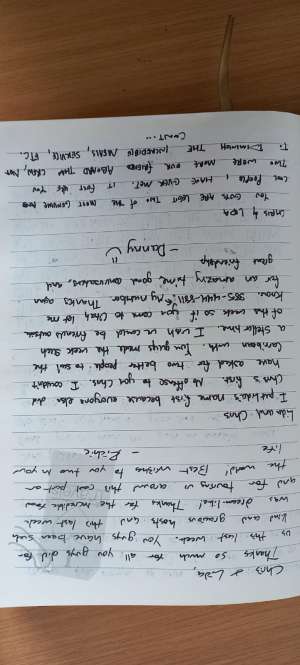 Chris & Lida,
Thanks so much for all you guys did for
us this last week. You guys have been such
kind and gracious hosts and this last week
was dream-like! Thanks for the incredible food
and for touring us around this cool part of
the world! Best wishes to you two in your
life
- Richie
Lida and Chris
I put Lida's name first because everyone else did
Chris first. No offense to you Chris. I couldn't
have asked for two better people to sail the
Caribbean with. You guys made the week such
a stellar time. I wish I could be friends outside
of this week so if you come to let me
know. My number again
Thanks
for an amazing time, good conversations, and
great friendship
- Danny
Chris & Lida
You guys are legit two of the most genuine
people I have ever met. It felt like you
two were more our friends aboard than crew, not
to diminish the incredible meals, service, etc.
Cont...